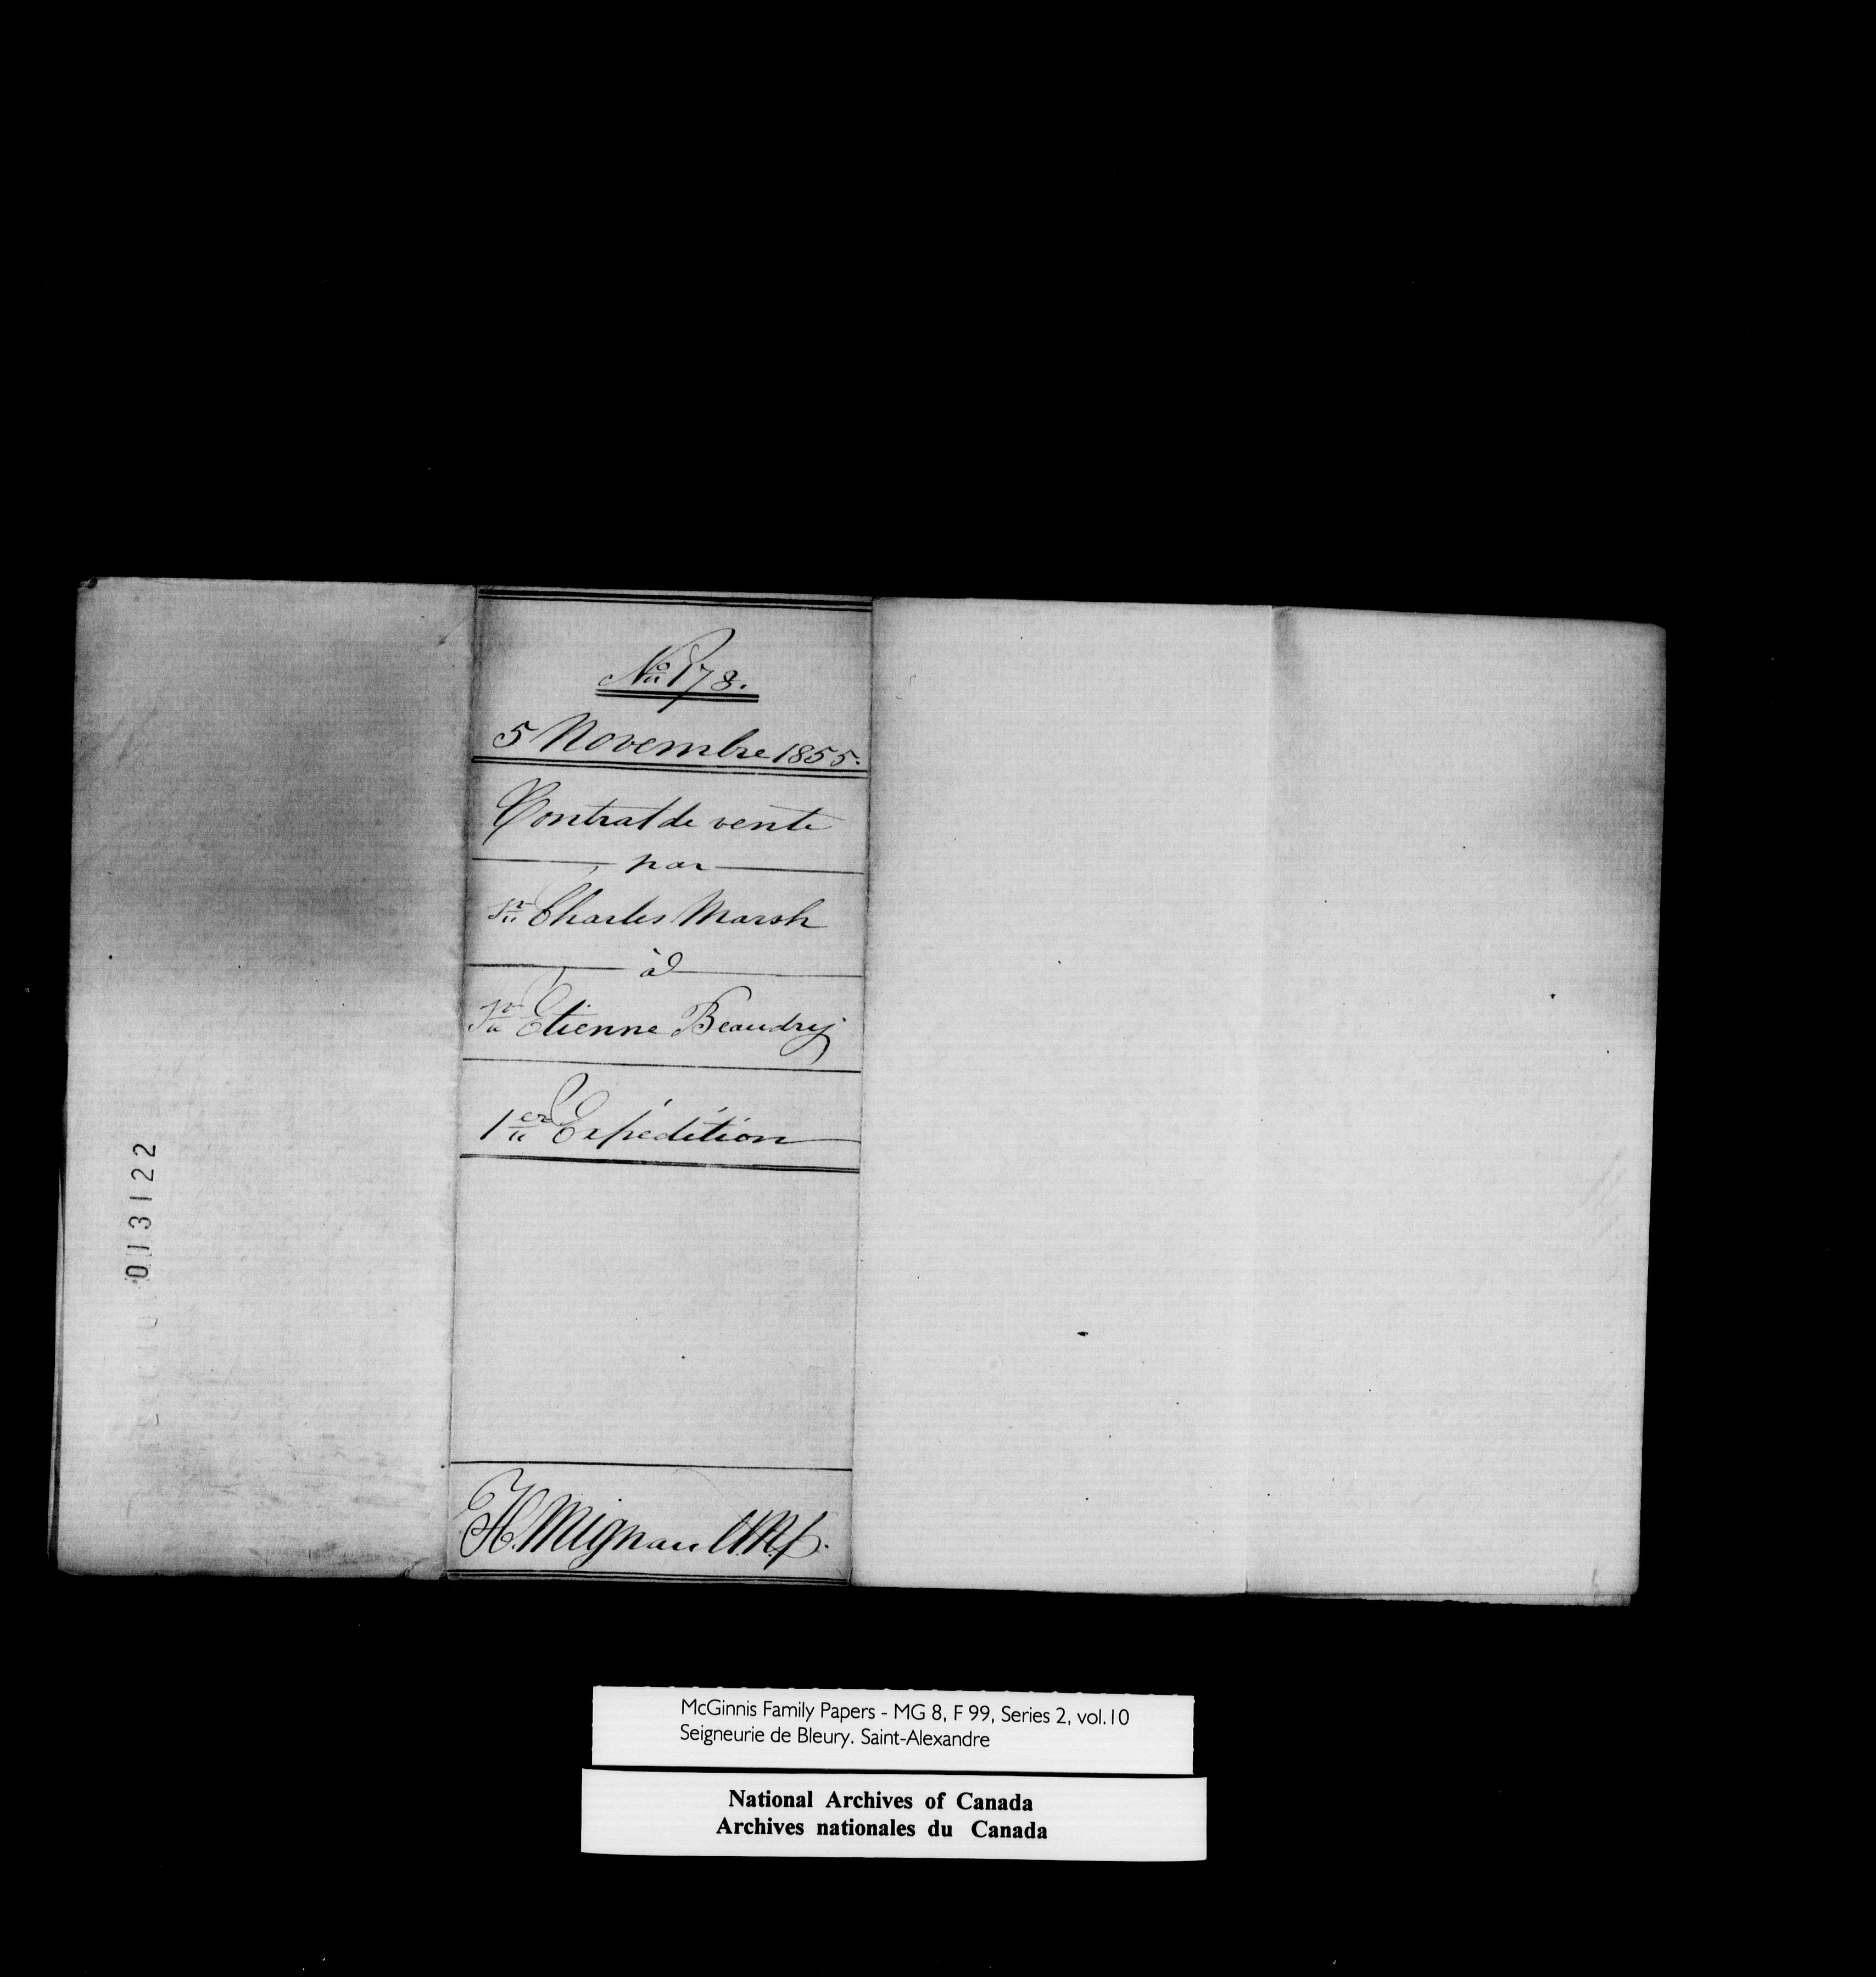 No 178.
5 Novembre 1855.
Contrat de vente
par
Sr Charles Marsh
à
Sr Etienne Beaudry
1er Expédition
H. Mignault N.P.
013122
McGinnis Family Papers - MG 8, F 99, Series 2, vol.10
Seigneurie de Bleury. Saint-Alexandre
National Archives of Canada
Archives nationales du Canada